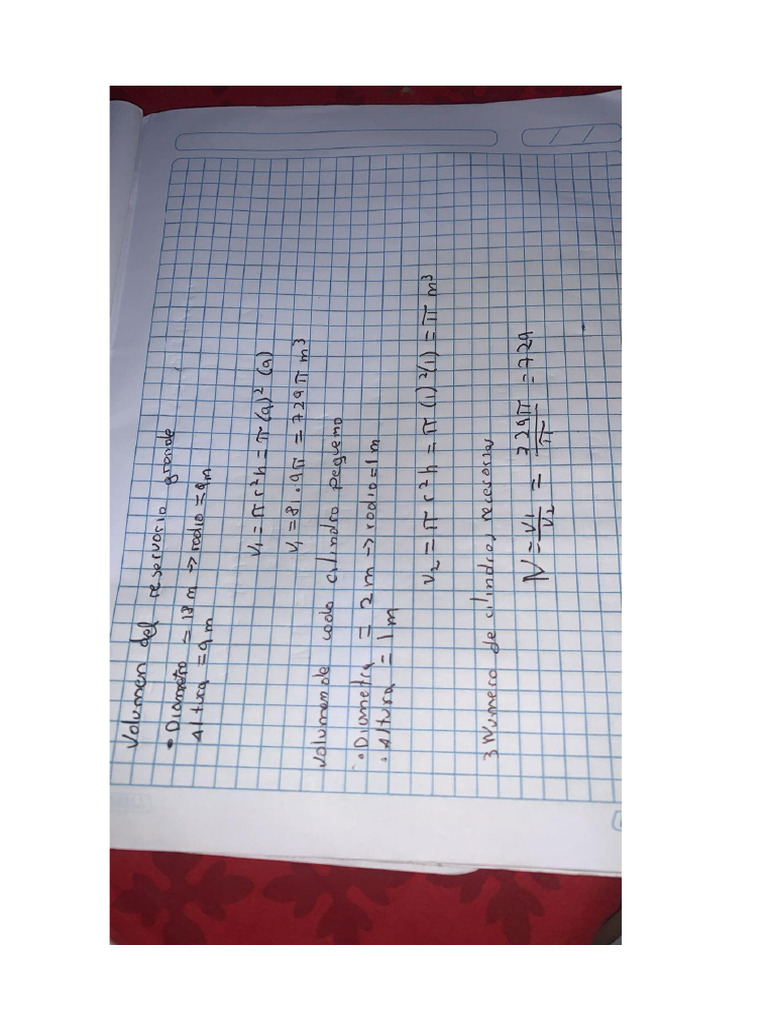 Volumen del reservorio grande
• Diametro = 18 m → radio = 9m
Altura = 9m
V₁ = π r²h = π (9)² (9)
V₁ = 81 . 9π = 729 π m³
Volumen de cada cilindro pequeno
• Diametra = 2 m → radio = 1m
• Altura = 1 m
V₂ = π r²h = π (1)²(1) = π m³
3 Numero de cilindros necesarios
N = V1/V2 = 729π/π = 729